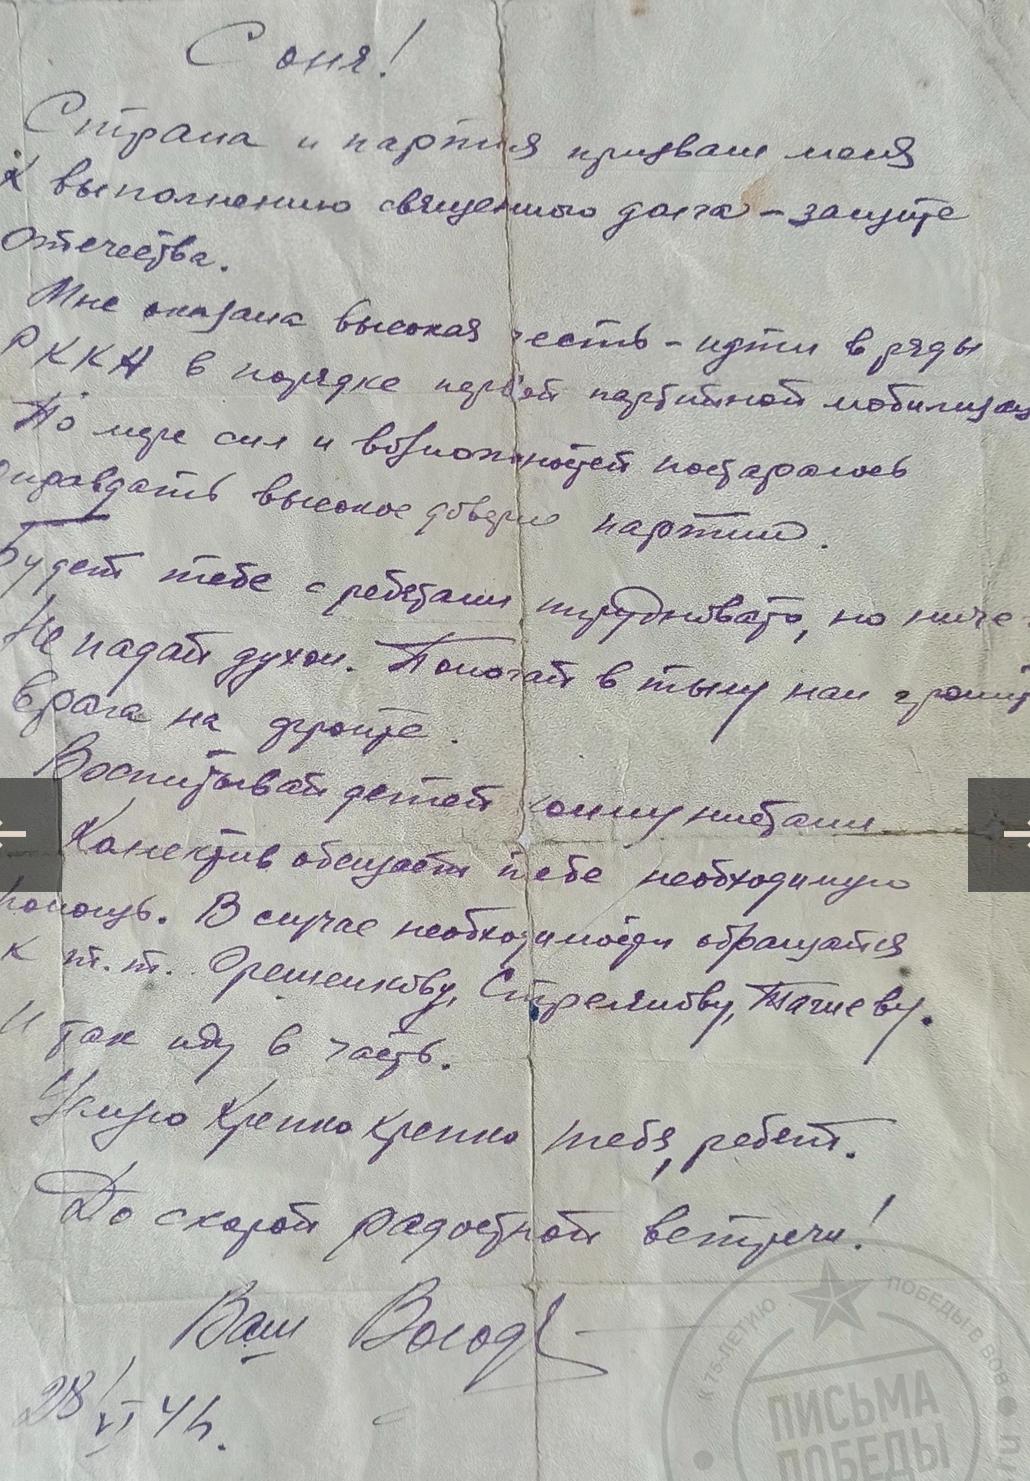 Соня!
Страна и партия призвали меня
к выполнению священного долга – защите
Отечества.
Мне оказана высокая честь – идти в ряды
РККА в порядке первой партийной мобилизации
По мере сил и возможностей постараюсь
оправдать высокое доверие партии.
Будет тебе с ребятами трудновато, но ниче
Не падай духом. Помогай в тылу нам громить
врага на фронте.
Воспитывай детей коммунистами
Колектив обещает тебе необходимую
помощь. В случае необходимости обращайся
к т.т. Орешенкову, Стрелкову, Тагиеву.
И так иду в часть.
Целую крепко крепко тебя, ребят.
До скорой радостной встречи!
Ваш Володя
28/VI 41 г.
К 75-ЛЕТИЮ ПОБЕДЫ В ВОВ
ПИСЬМА
ПОБЕДЫ